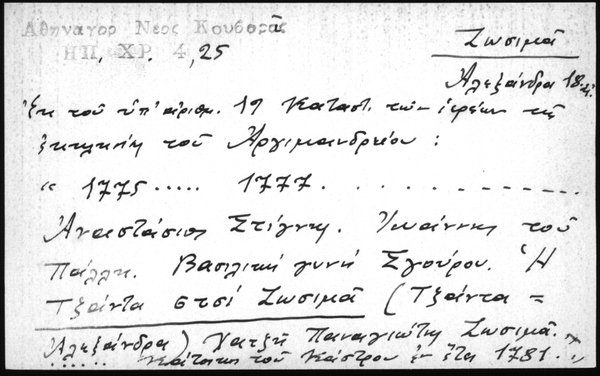 Αθηναγορ Νεος Κουβαρᾶς
ΗΠ. ΧΡ. 4, 25
Ζωσιμᾶ
Ἀλεξάνδρα 18
Ἐκ τοῦ ὑπ' ἀριθμ. 19 Καταστ. τῶν τῆς
τοῦ Ἀργιμανδρείου :
" 1775 ..... 1777. . . . . . . . . . . .
Ἀναστάσιος Στίγνη. Ἰωάννης τοῦ
Πάλλη. Βασιλικὴ γυνὴ Σγούρου. Ἡ
Τζάντα Ζωσιμᾶ (Τζάντα =
Ἀλεξάνδρα) Χατζῆ Παναγιώτη Ζωσιμᾶ.
...... Κάτοικος τοῦ Κάστρου ἐν ἔτει 1781.